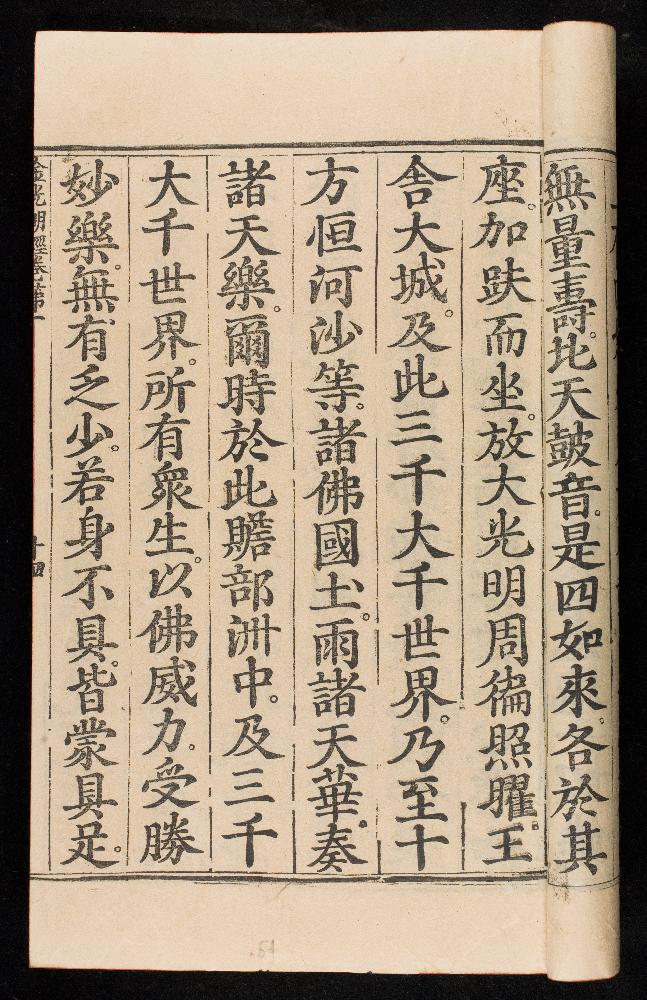 無量壽。北天皷音。是四如來。各於其
座。加趺而坐。放大光明周徧照曜。王
舍大城。及此三千大千世界。乃至十
方恒河沙等。諸佛國土。雨諸天華。奏
諸天樂。爾時於此贍部洲中。及三千
大千世界。所有衆生。以佛威力。受勝
妙樂。無有乏少。若身不具。皆蒙具足。
金光明經卷第一
十四